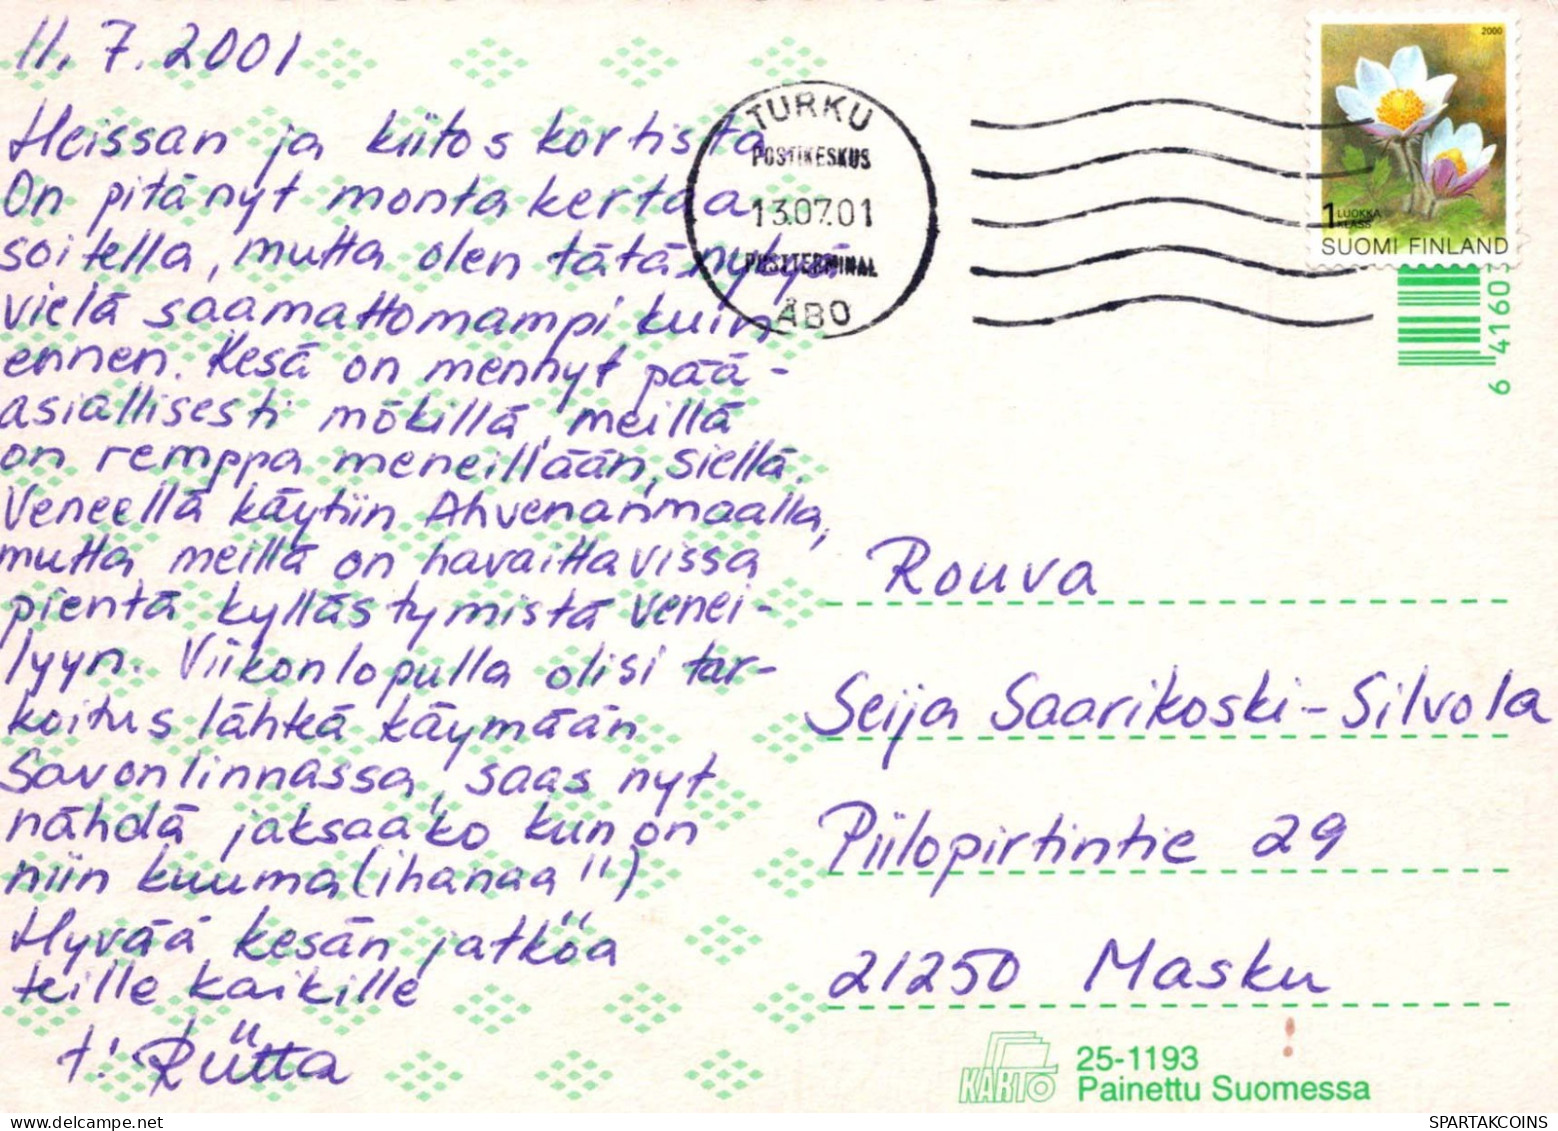 11.7.2001
Heissan ja kiitos kortista
On pitänyt monta kertaa
soitella, mutta olen tätä nykyä
vielä saamattomampi kuin
ennen. Kesä on mennyt pää-
asiallisesti mökillä, meillä
on remppa meneillään, siellä.
Veneellä käytiin Ahvenanmaalla,
mutta meillä on havaittavissa
pientä kyllästymistä venei-
lyyn. Viikonlopulla olisi tar-
koitus lähteä käymään
Savonlinnassa, saas nyt
nähdä jaksaako kun on
niin kuuma (ihanaa !!)
Hyvää kesän jatkoa
teille kaikille
t: Riitta
TURKU
POSTIKESKUS
13.07.01
POSTTERMINAL
ÅBO
2000
1 LUOKKA
KLASS
SUOMI FINLAND
6 41603
Rouva
Seija Saarikoski-Silvola
Piilopirtintie 29
21250 Masku
KARTO
25-1193
Painettu Suomessa
SPARTAKCOINS